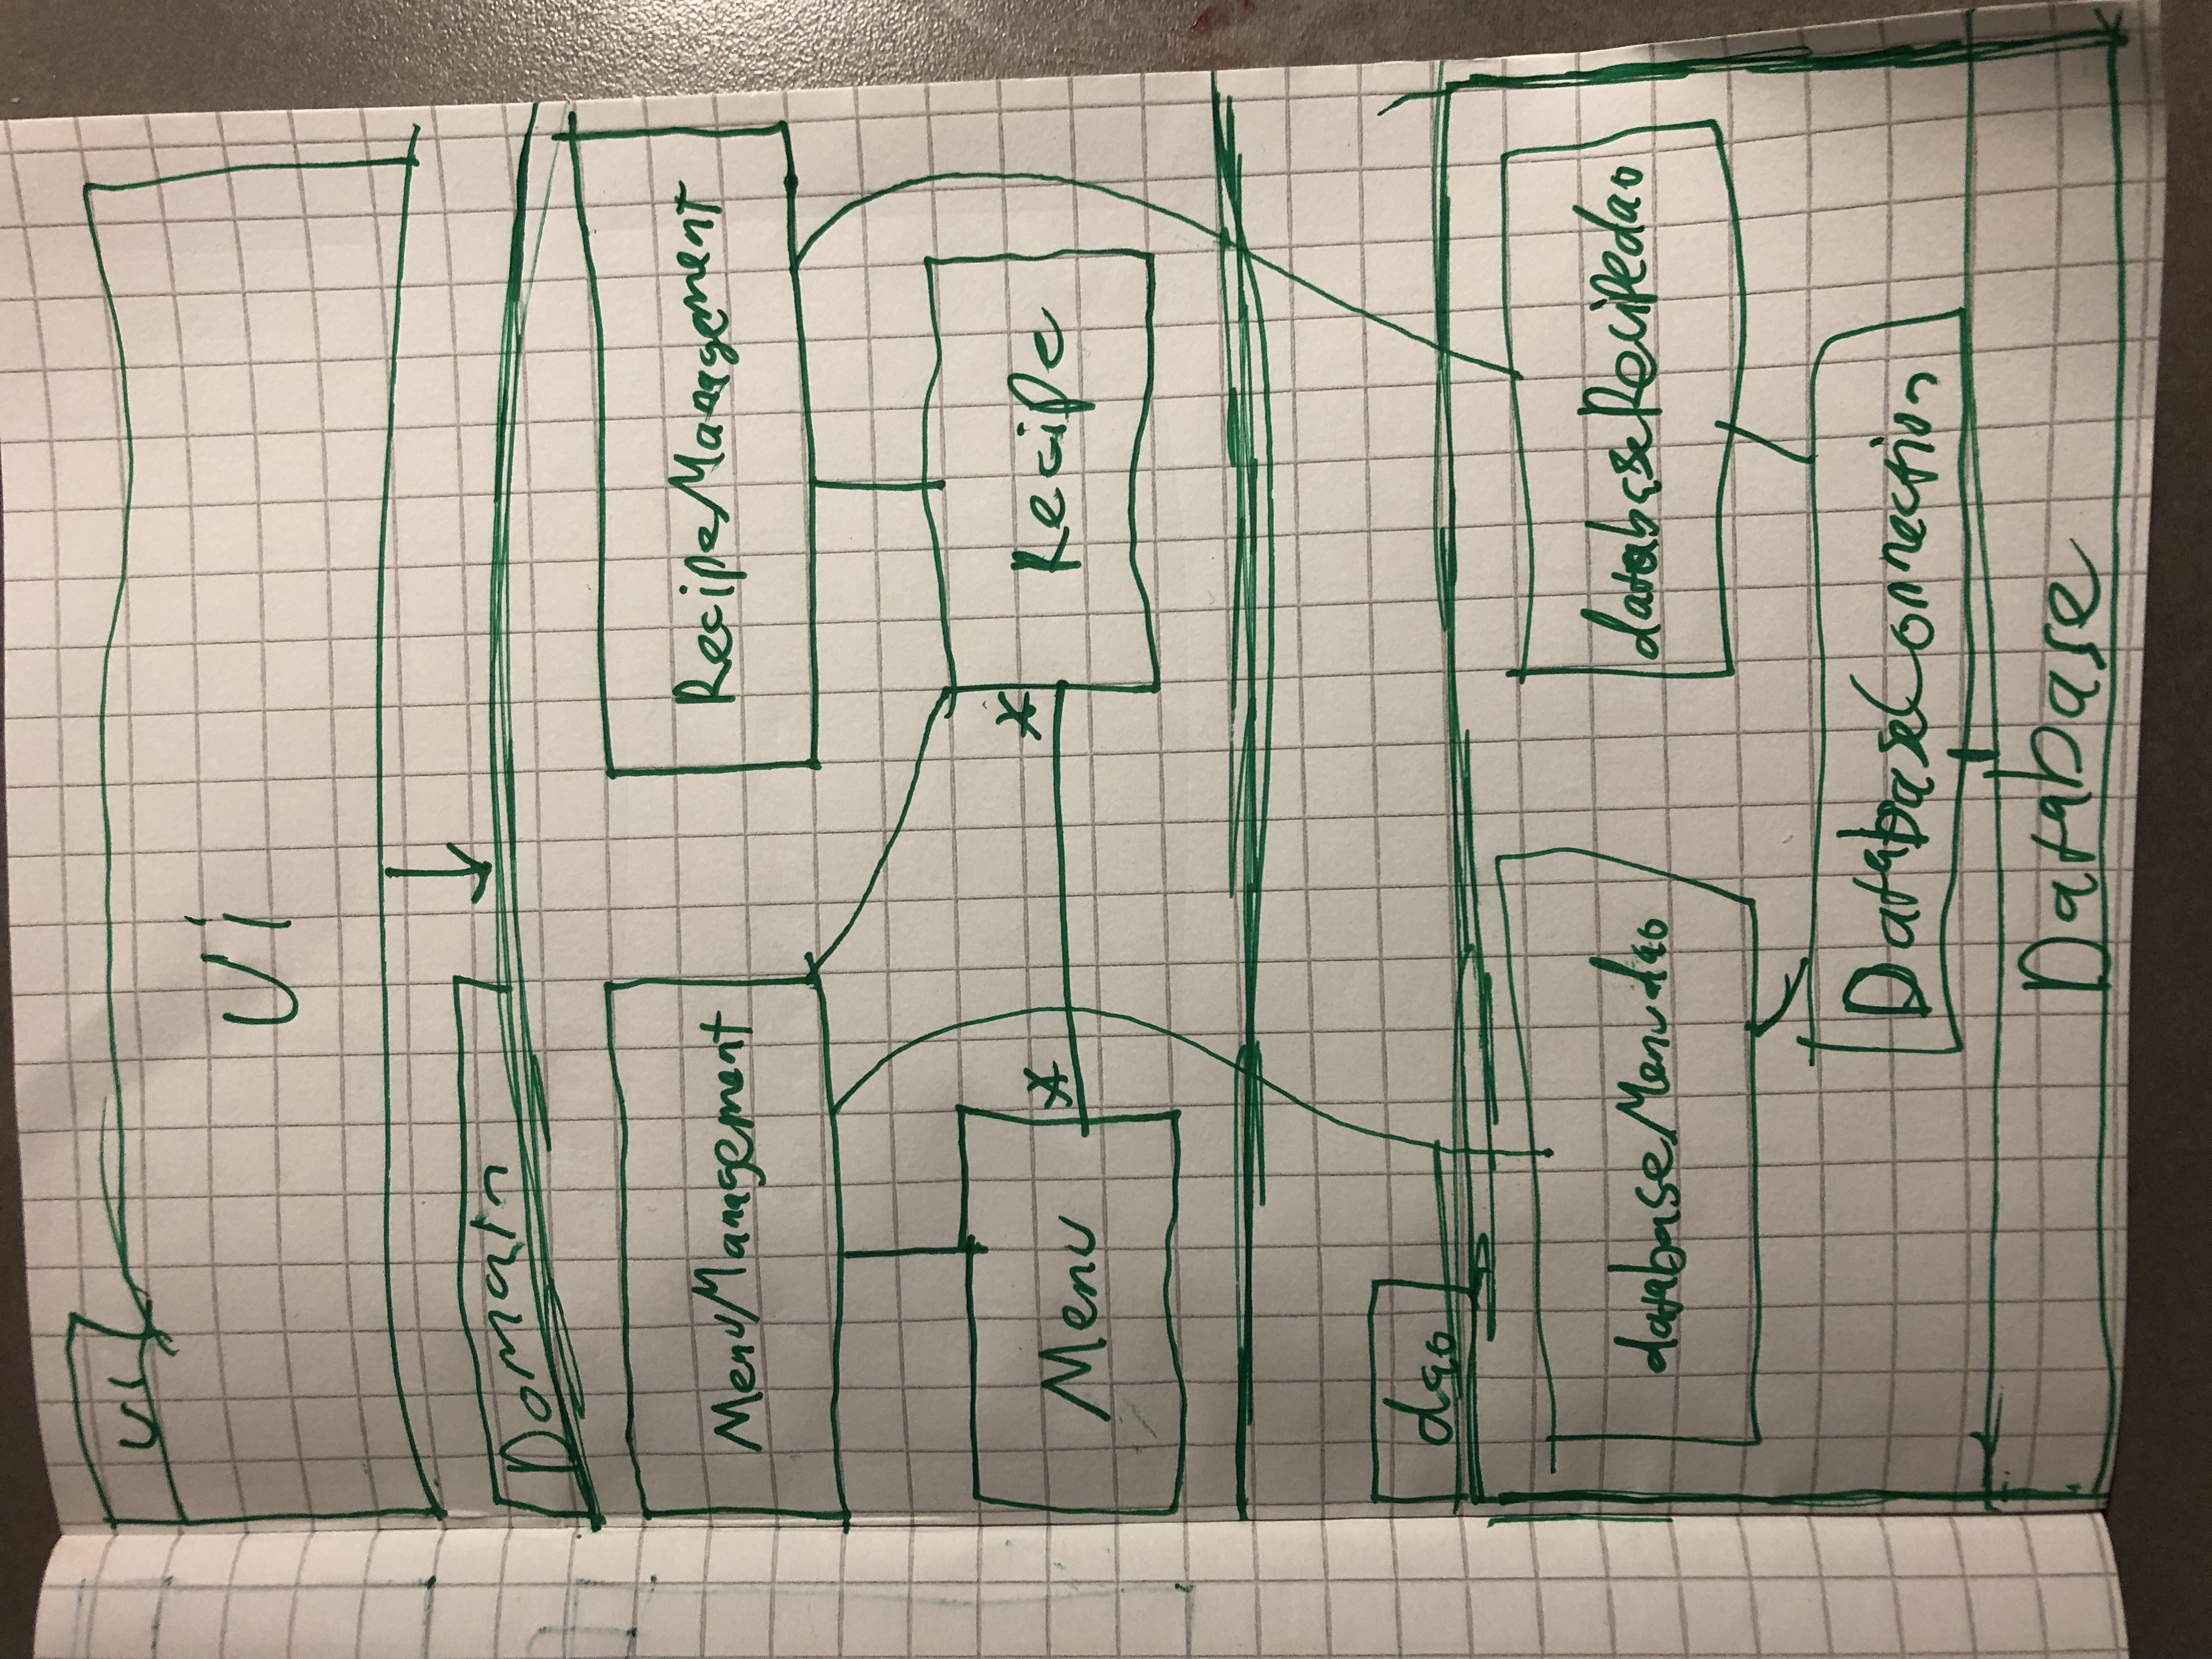 ui
Ui
Domain
MenuManagement
RecipeManagement
Menu
*
*
Recipe
dao
databaseMenudao
databaseRecipedao
DatabaseConnection
Database